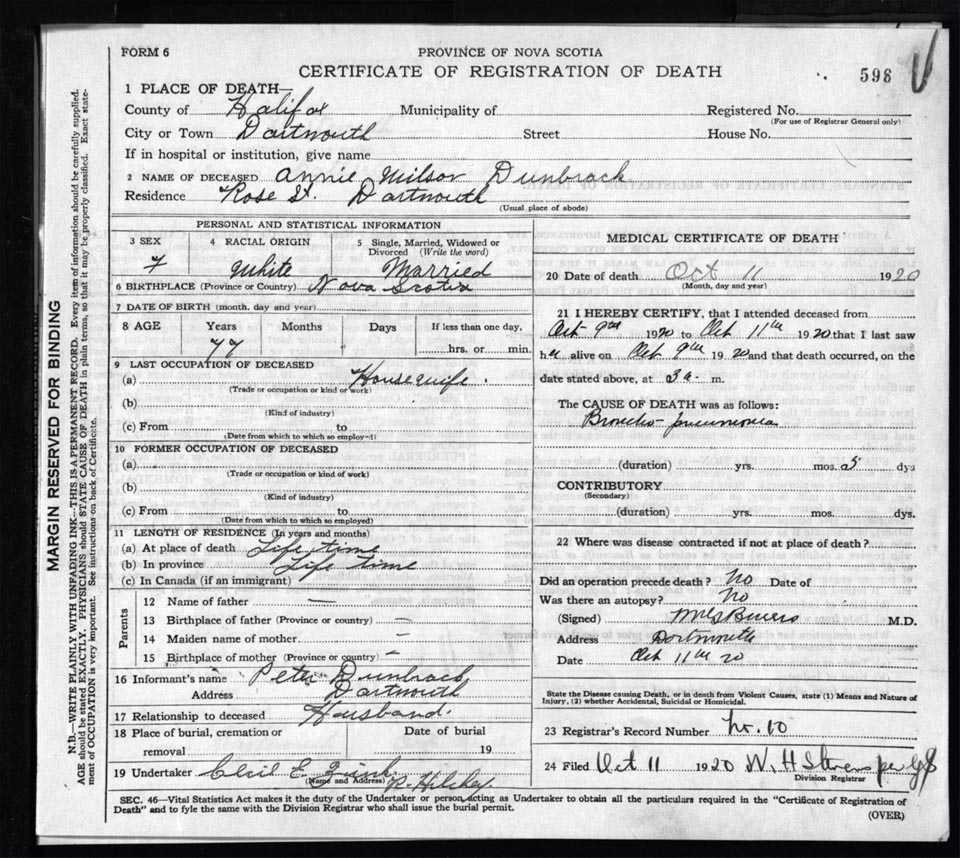 FORM 6
PROVINCE OF NOVA SCOTIA
CERTIFICATE OF REGISTRATION OF DEATH
598
1 PLACE OF DEATH—
County of Halifax Municipality of Registered No.
(For use of Registrar General only)
City or Town Dartmouth Street House No.
If in hospital or institution, give name
2 NAME OF DECEASED Annie Milsor Dunbrack
Residence Rose St. Dartmouth
(Usual place of abode)
PERSONAL AND STATISTICAL INFORMATION
3 SEX 4 RACIAL ORIGIN 5 Single, Married, Widowed or Divorced (Write the word)
F White Married
6 BIRTHPLACE (Province or Country) Nova Scotia
7 DATE OF BIRTH (month, day and year)
8 AGE Years Months Days If less than one day,
77 hrs. or min.
9 LAST OCCUPATION OF DECEASED
(a) Housewife.
(Trade or occupation or kind of work)
(b)
(Kind of industry)
(c) From to
(Date from which to which so employed)
10 FORMER OCCUPATION OF DECEASED
(a)
(Trade or occupation or kind of work)
(b)
(Kind of industry)
(c) From to
(Date from which to which so employed)
11 LENGTH OF RESIDENCE (In years and months)
(a) At place of death Life time
(b) In province Life time
(c) In Canada (if an immigrant)
Parents
12 Name of father —
13 Birthplace of father (Province or country) —
14 Maiden name of mother —
15 Birthplace of mother (Province or country) —
16 Informant's name Peter Dunbrack
Address Dartmouth
17 Relationship to deceased Husband.
18 Place of burial, cremation or removal Date of burial
19
19 Undertaker Cecil E. Zink
(Name and Address)
MEDICAL CERTIFICATE OF DEATH
20 Date of death Oct 11 1920
(Month, day and year)
21 I HEREBY CERTIFY, that I attended deceased from
Oct 9th 1920 to Oct 11th 1920 that I last saw
her alive on Oct 9th 1920 and that death occurred, on the
date stated above, at 3 a. m.
The CAUSE OF DEATH was as follows:
Broncho-pneumonia
(duration) yrs. mos. 5 dys
CONTRIBUTORY
(Secondary)
(duration) yrs. mos. dys.
22 Where was disease contracted if not at place of death?
Did an operation precede death? No Date of
Was there an autopsy? No
(Signed) M.D.
Address Dartmouth
Date Oct 11th 20
State the Disease causing Death, or in death from Violent Causes, state (1) Means and Nature of
Injury, (2) whether Accidental, Suicidal or Homicidal.
23 Registrar's Record Number
24 Filed Oct 11 1920 W. H. Stevens
Division Registrar
SEC. 46—Vital Statistics Act makes it the duty of the Undertaker or person acting as Undertaker to obtain all the particulars required in the "Certificate of Registration of
Death" and to fyle the same with the Division Registrar who shall issue the burial permit.
(OVER)
MARGIN RESERVED FOR BINDING
N.B.—WRITE PLAINLY WITH UNFADING INK—THIS IS A PERMANENT RECORD. Every item of information should be carefully supplied.
AGE should be stated EXACTLY. PHYSICIANS should STATE CAUSE OF DEATH in plain terms, so that it may be properly classified. Exact state-
ment of OCCUPATION is very important. See instructions on back of Certificate.